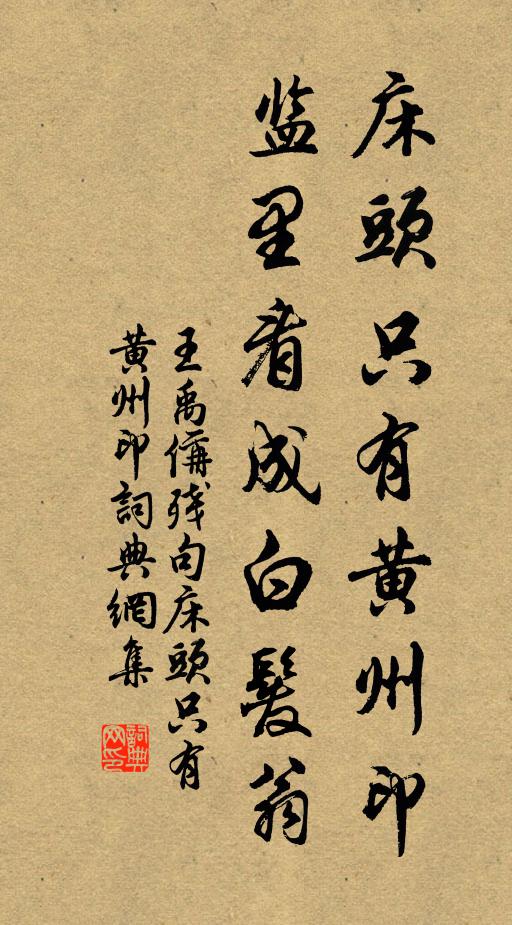 床頭只有黄州印
监里看成白髮翁
王禹偁残句床頭只有
黄州印詞典網集
詞典网印